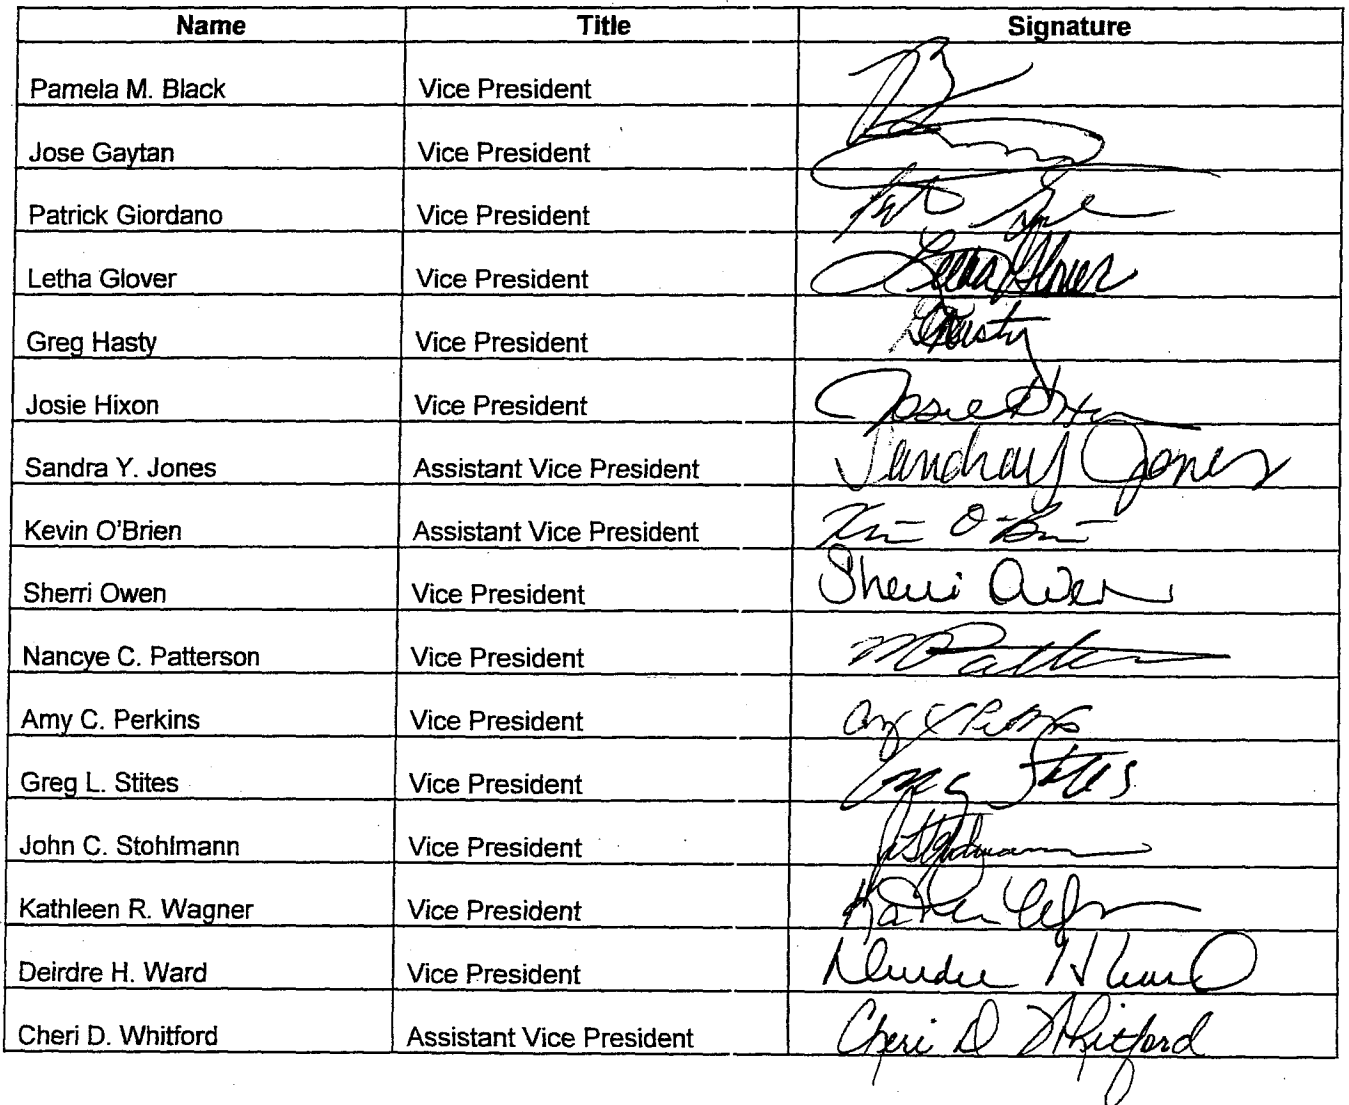 Name Title Signature
Pamela M. Black Vice President
Jose Gaytan Vice President
Patrick Giordano Vice President
Letha Glover Vice President Letha Glover
Greg Hasty Vice President GHasty
Josie Hixon Vice President Josie Hixon
Sandra Y. Jones Assistant Vice President Sandra Y Jones
Kevin O'Brien Assistant Vice President Kevin O'Brien
Sherri Owen Vice President Sherri Owen
Nancye C. Patterson Vice President
Amy C. Perkins Vice President Amy C Perkins
Greg L. Stites Vice President Stites
John C. Stohlmann Vice President
Kathleen R. Wagner Vice President
Deirdre H. Ward Vice President Deirdre H Ward
Cheri D. Whitford Assistant Vice President Cheri D Whitford